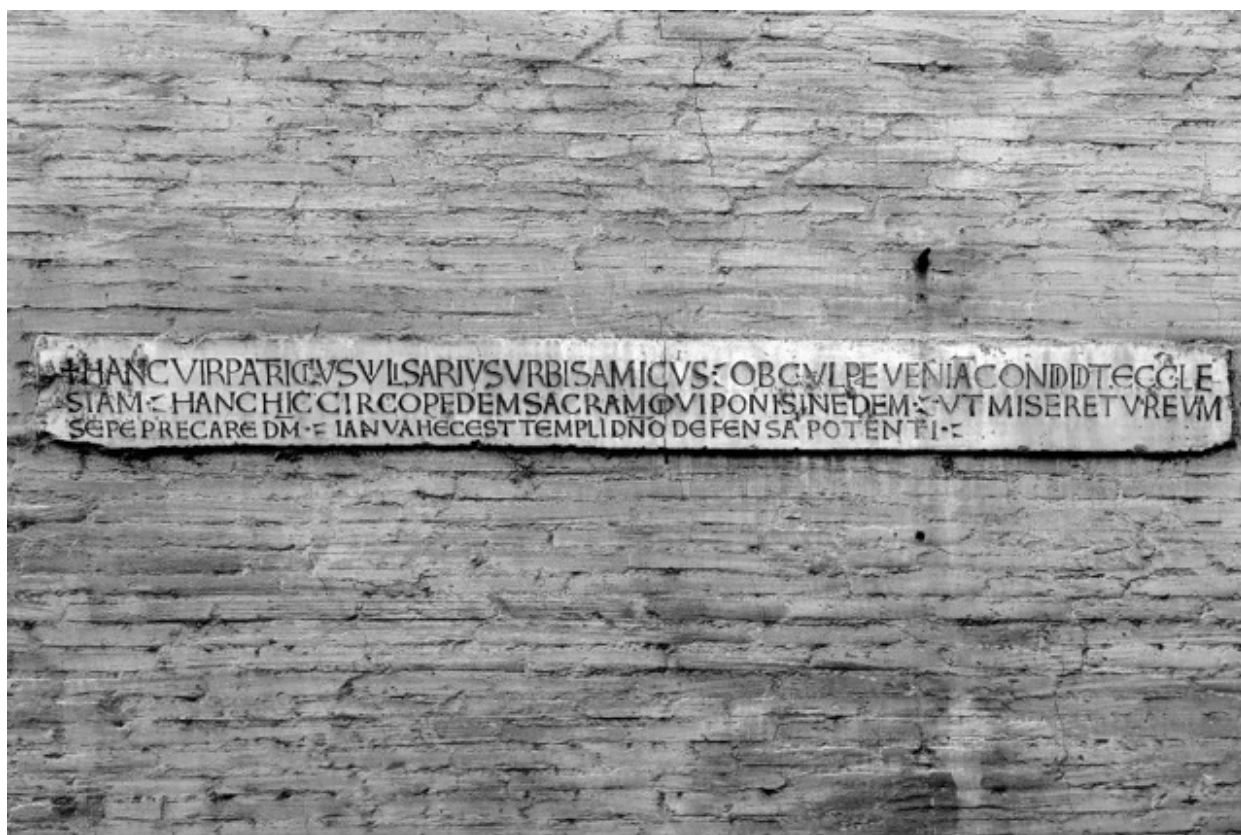 +HANC VIR PATRICIVS VILISARIVS VRBIS AMICVS : OB CVLPE VENIA CONDIDIT ECCLE
SIAM : HANC HIC CIRCO PEDEM SACRAM QVI PONIS IN EDEM : VT MISERETVR EVM
SEPE PRECARE DM : IANVA HEC EST TEMPLI DNO DEFENSA POTENTI :